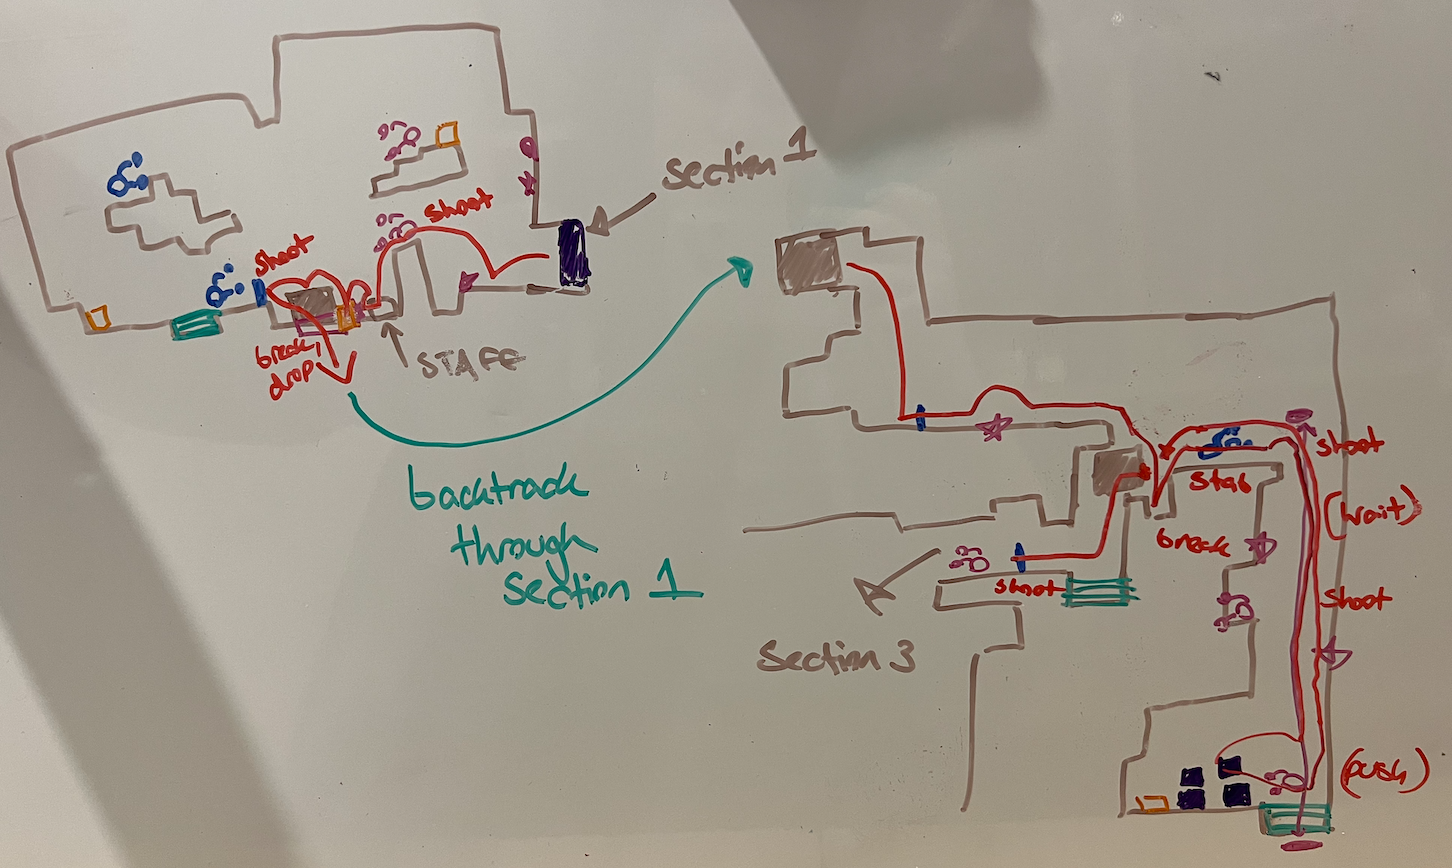 Section 1
shoot
shoot
break,
drop
STAFF
backtrack
through
Section 1
shoot
stab
(wait)
break
shoot
shoot
Section 3
(push)